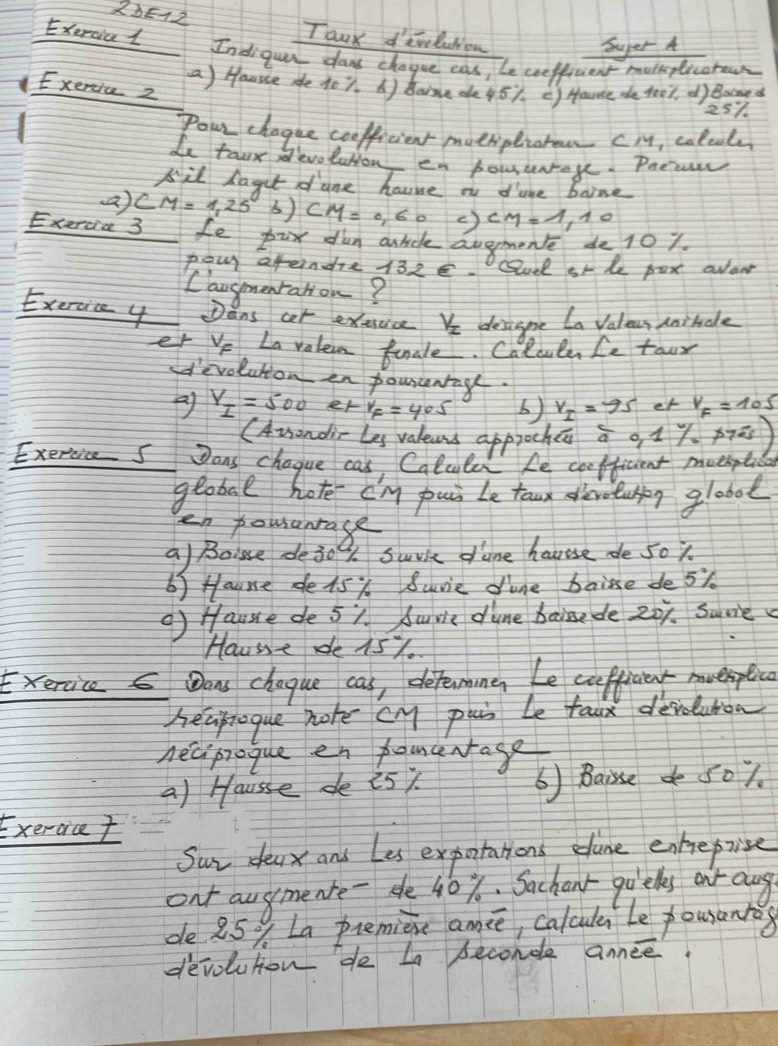 2DE12
Taux d'évolution
Sujet A
Exercice 1
Indiquer dans chaque cas, Le coefficient multiplicateur
a) Hausse de 10% b) Baisse de 45% c) Hausse de 100% d) Baisse d
25%
Exercice 2
Pour chaque coefficient multiplicateur CM, calculer
Le taux d'évolution en pourcentage. Préciser
s'il s'agit d'une hausse ou d'une baisse
a) CM = 1,25 b) CM = 0,60 c) CM = 1,10
Exercice 3 Le prix d'un article augmente de 10%.
pour ateindre 132 €. Quel est le prix avant
L'augmentation ?
Exercice 4 Dans cet exercice VI désigne La Valeur initiale
et VF La valeur finale. Calculer Le taux
d'évolution en pourcentage.
a) VI = 500 et VF = 405 b) VI = 95 et VF = 105
(Arrondir Les valeurs approchées à 0,1% près)
Exercice 5 Dans chaque cas, Calculer Le coefficient multiplicat
global noté CM puis Le taux d'évolution global
en pourcentage
a) Baisse de 30% suivie d'une hausse de 50%
b) Hausse de 15% Suivie d'une baisse de 5%
c) Hausse de 5% Suivie d'une baisse de 20% Suivie d
Hausse de 15%.
Exercice 6 Dans chaque cas, déterminer Le coefficient multiplica
réciproque noté CM puis Le taux d'évolution
réciproque en pourcentage
a) Hausse de 25% b) Baisse de 50%.
Exercice 7
Sur deux ans Les exportations d'une entreprise
ont augmenté de 40%. Sachant qu'elles ont aug
de 25% La première année, calculer Le pourcentag
d'évolution de La seconde année.